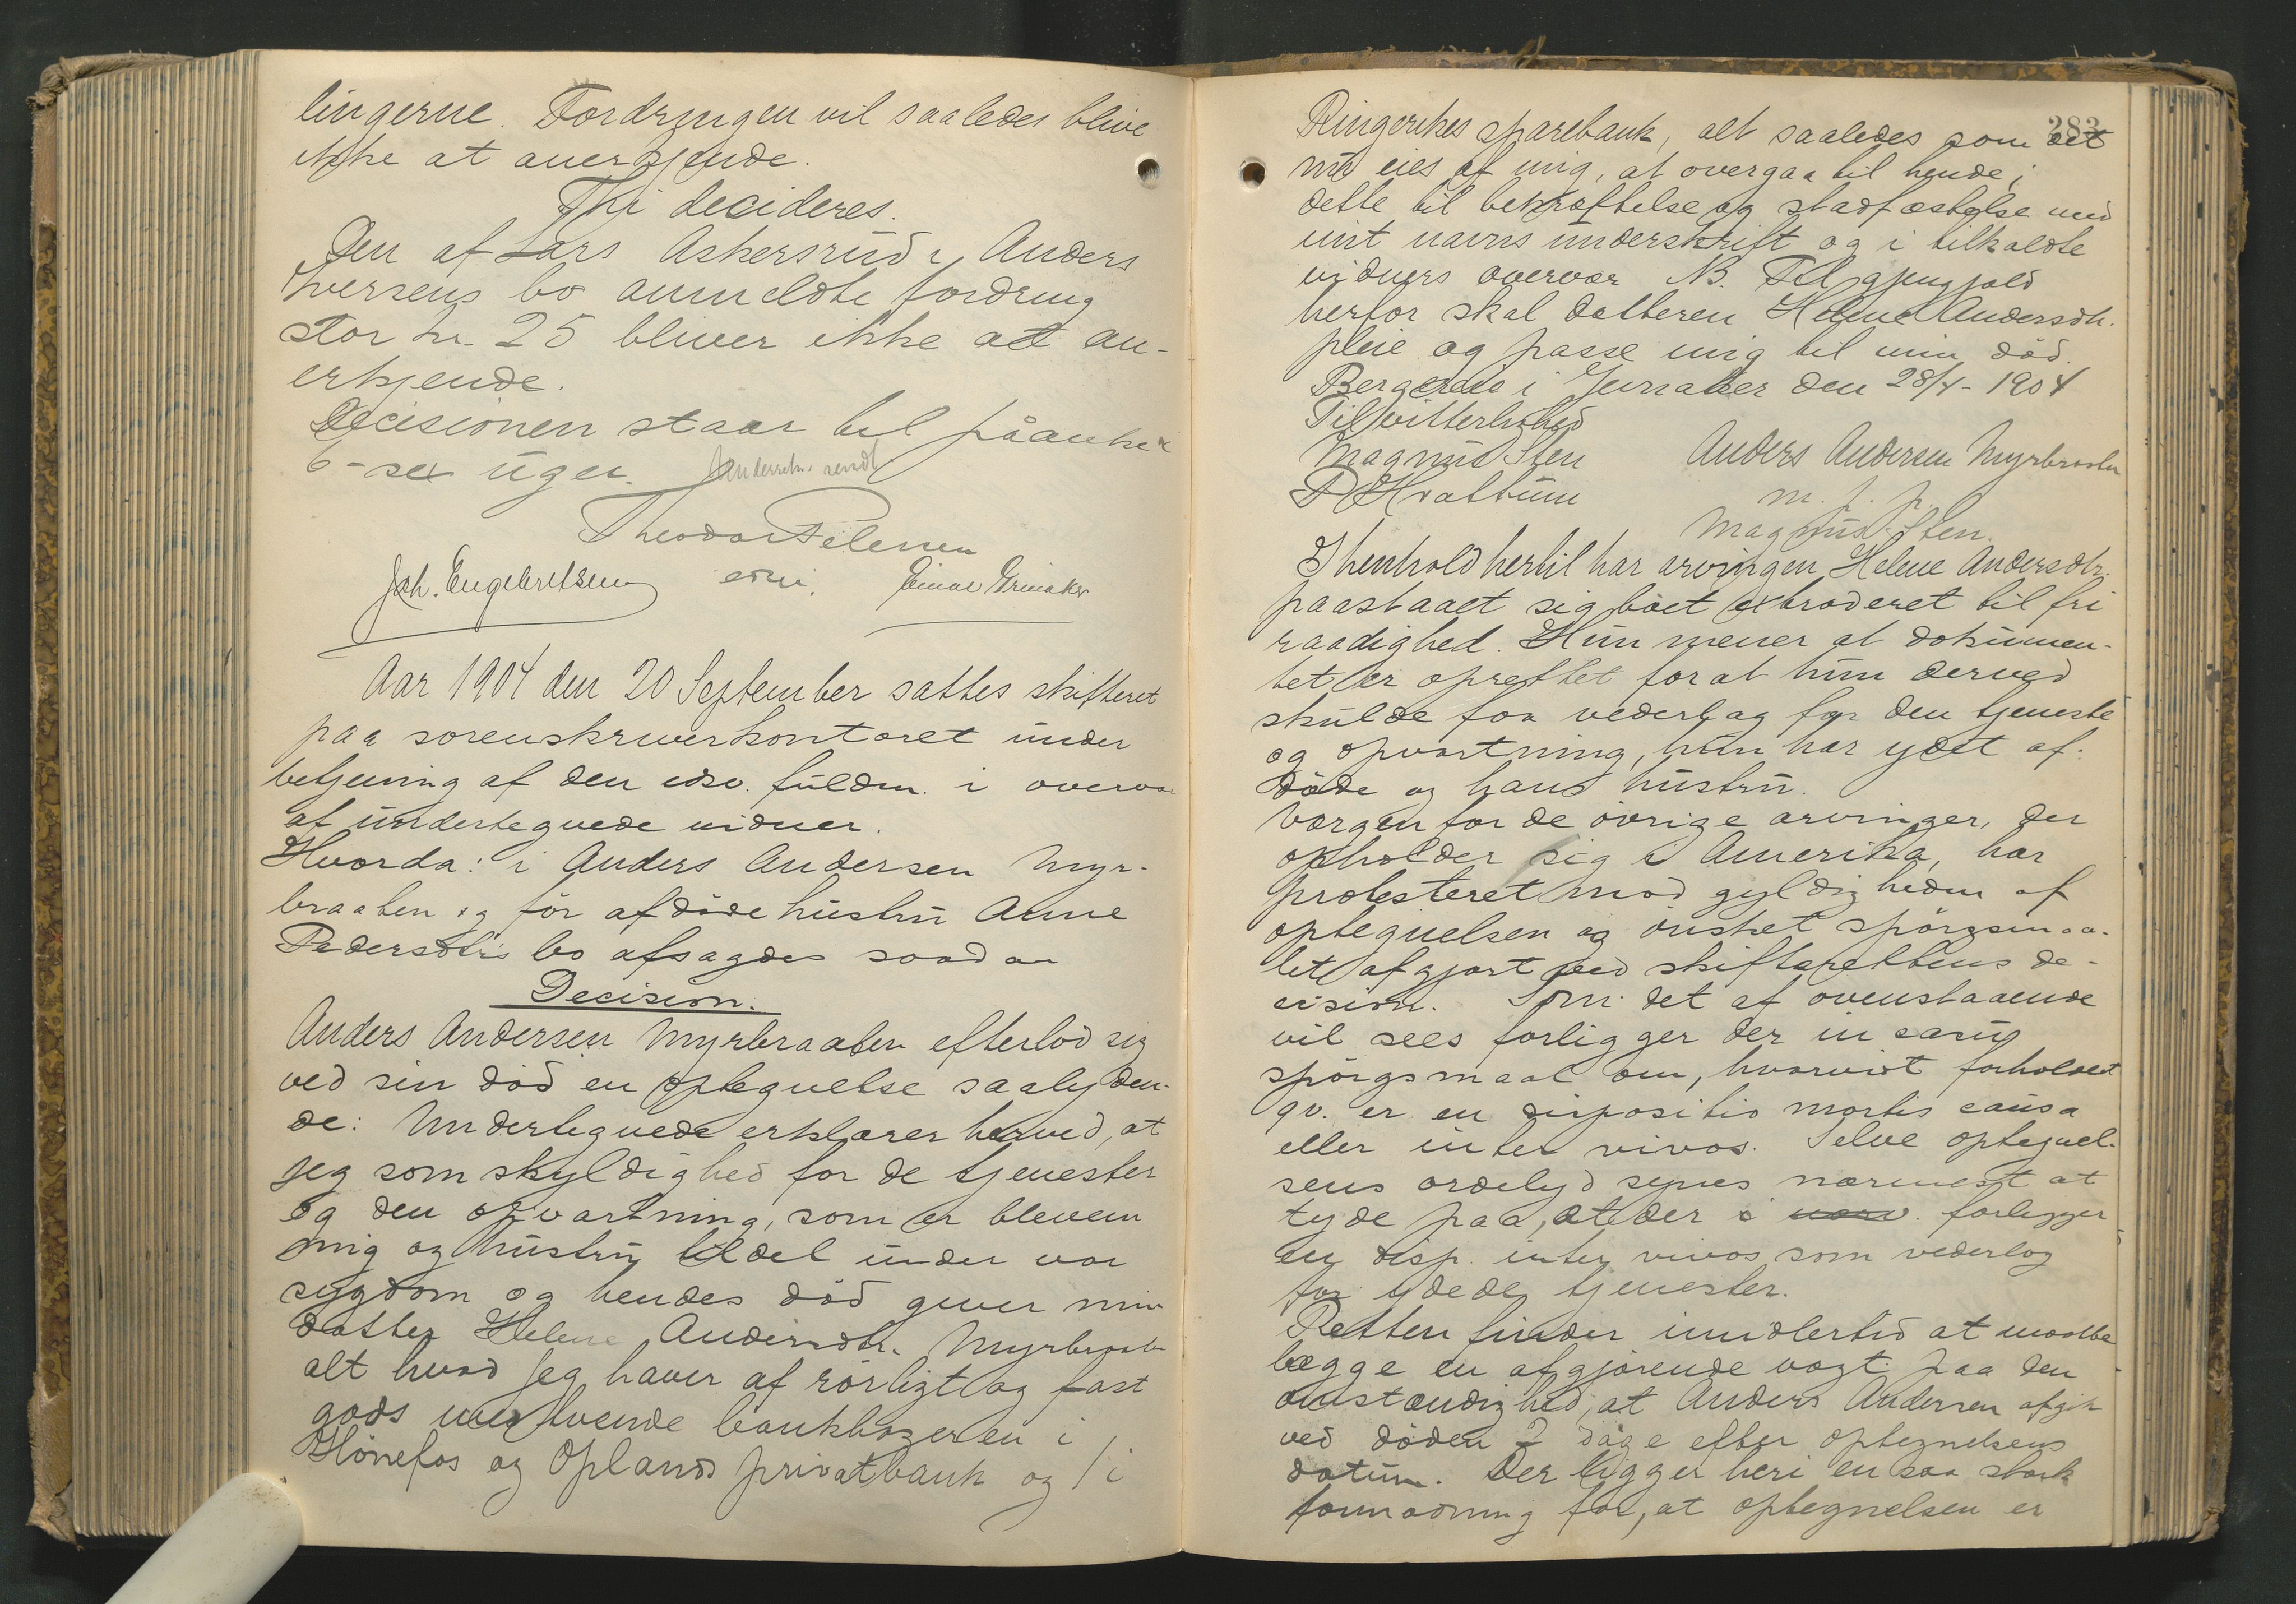 lingerne. Fordringen vil saaledes blive
ikke at anerkjende.
Thi decideres.
Den af Lars Askersrud i Anders
Iversens bo anmeldte fordring
stor kr. 25 bliver ikke at an-
erkjende.
Decisionen staar til påanke i
6 - sex uger.
Theodor Petersen
edsv.
Joh. Engebretsen
Aar 1904 den 20 September sattes skifteret
paa sorenskriverkontoret under
betjening af den edsv. fuldm. i overvær
af undertegnede vidner.
Hvorda: i Anders Andersen Myr-
braaten og før afdøde hustru Anne
Pedersdtrs bo afsagdes saadan
Decision.
Anders Andersen Myrbraaten efterlod sig
ved sin död en optegnelse saalyden-
de: Undertegnede erklærer herved, at
jeg som skyldighed for de tjenester
og den opvartning, som er bleven
mig og hustru tildel under vor
sygdom og hendes död giver min
datter Helene Andersdtr. Myrbraaten
alt hvad jeg haver af rörligt og fast
gods iberoende bankbogen i
Hönefos og Oplands privatbank og i
383
Ringerikes sparebank, alt saaledes som det
nu eies af mig, at overgaa til hende;
dette til bekræftelse og stadfæstelse med
mit navns underskrift og i tilkaldte
vidners overvær NB. Til gjengjæld
herfor skal datteren Helene Andersdtr.
pleie og passe mig til min död.
i Jevnaker den 28/4 - 1904
Til vitterlighed
Magnus Sten Anders Andersen Myrbraaten
P Hvattum m. f. p.
Magnus Sten.
I henhold hertil har arvingen Helene Andersdtr.
paastaaet sig boet extraderet til fri
raadighed. Hun mener at dokumen-
tet er oprettet forat hun derved
skulde faa vederlag for den tjeneste
og opvartning, hun har ydet af-
døde og hans hustru.
Vergen for de övrige arvinger, der
opholder sig i Amerika, har
protesteret mod gyldigheden af
optegnelsen og önsket spörgsmaa-
let afgjort ved skifterettens de-
cision. Som det af ovenstaaende
vil sees forligger der in casu
spörgsmaal om, hvorvidt forholdet
qv. er en dispositio mortis causa
eller inter vivos. Selve optegnel-
sens ordelyd synes nærmest at
tyde paa, at der forligger
en disp. inter vivos som vederlag
for ydede tjenester.
Retten finder imidlertid at maatte
lægge en afgjörende vegt paa den
omstændighed, at Anders Andersen afgik
ved döden 2 dage efter optegnelsens
datum. Der ligger heri en saa stærk
formodning for, at optegnelsen er